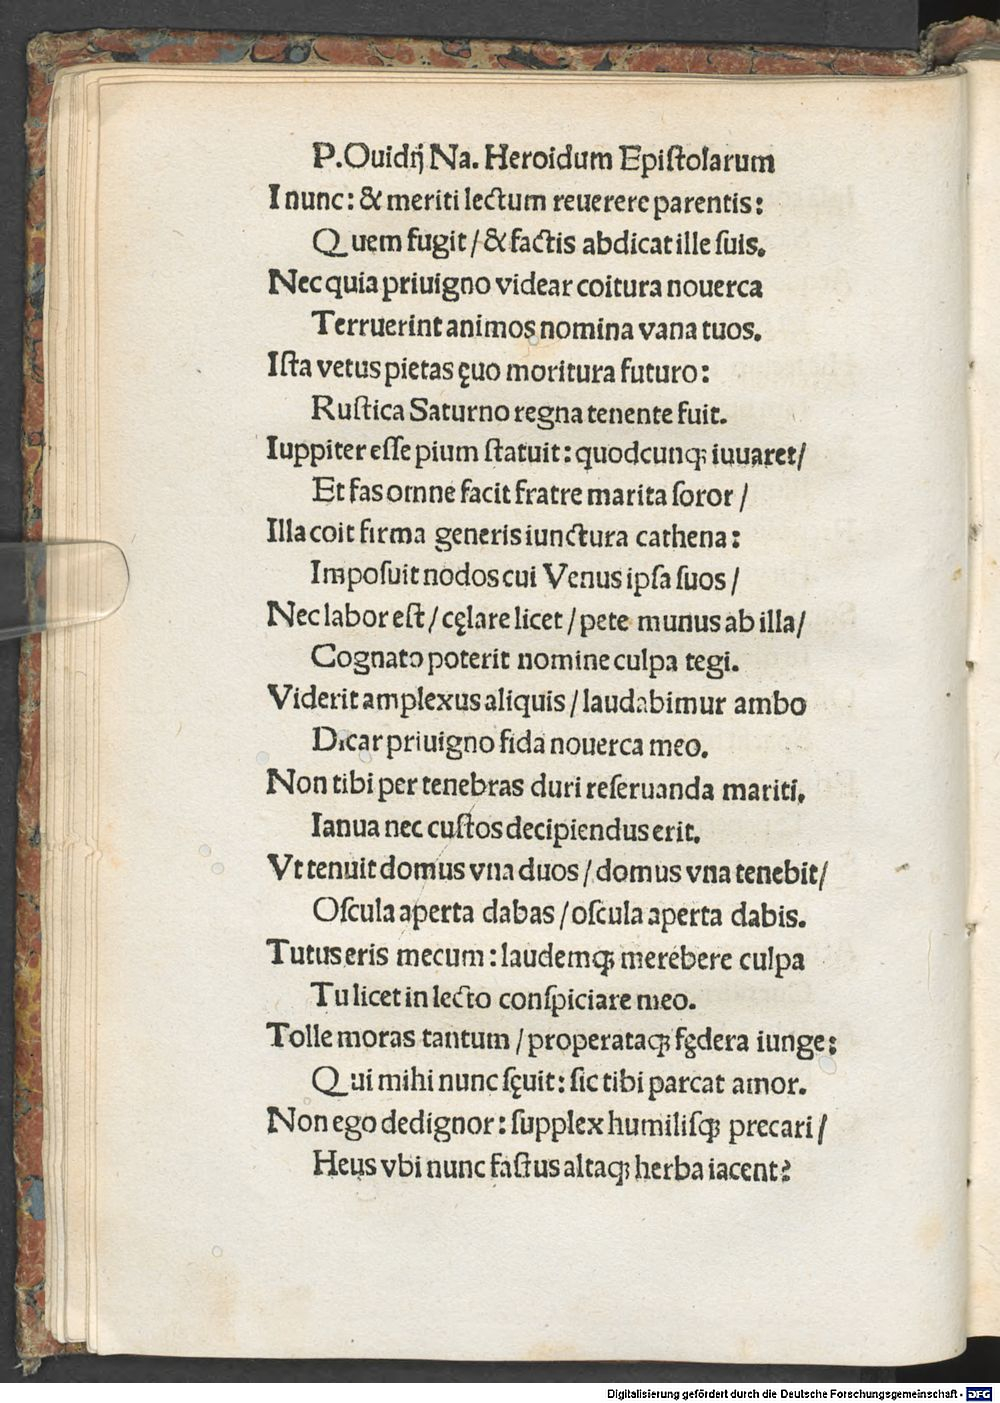 P.Ouidij Na. Heroidum Epiſtolarum
I nunc: & meriti lectum reuerere parentis:
Quem fugit / & factis abdicat ille ſuis.
Nec quia priuigno videar coitura nouerca
Terruerint animos nomina vana tuos.
Iſta vetus pietas ęuo moritura futuro:
Ruſtica Saturno regna tenente fuit.
Iuppiter eſſe pium ſtatuit: quodcunqꝫ iuuaret/
Et fas omne facit fratre marita ſoror /
Illa coit firma generis iunctura cathena:
Impoſuit nodos cui Venus ipſa ſuos /
Nec labor eſt / cęlare licet / pete munus ab illa/
Cognato poterit nomine culpa tegi.
Viderit amplexus aliquis / laudabimur ambo
Dicar priuigno fida nouerca meo.
Non tibi per tenebras duri reſeruanda mariti.
Ianua nec cuſtos decipiendus erit.
Vt tenuit domus vna duos / domus vna tenebit/
Oſcula aperta dabas / oſcula aperta dabis.
Tutus eris mecum: laudemqꝫ merebere culpa
Tu licet in lecto conſpiciare meo.
Tolle moras tantum / properataqꝫ fędera iunge:
Qui mihi nunc ſęuit: ſic tibi parcat amor.
Non ego dedignor: ſupplex humiliſqꝫ precari /
Heus vbi nunc faſtus altaqꝫ herba iacent?
Digitalisierung gefördert durch die Deutsche Forschungsgemeinschaft - DFG